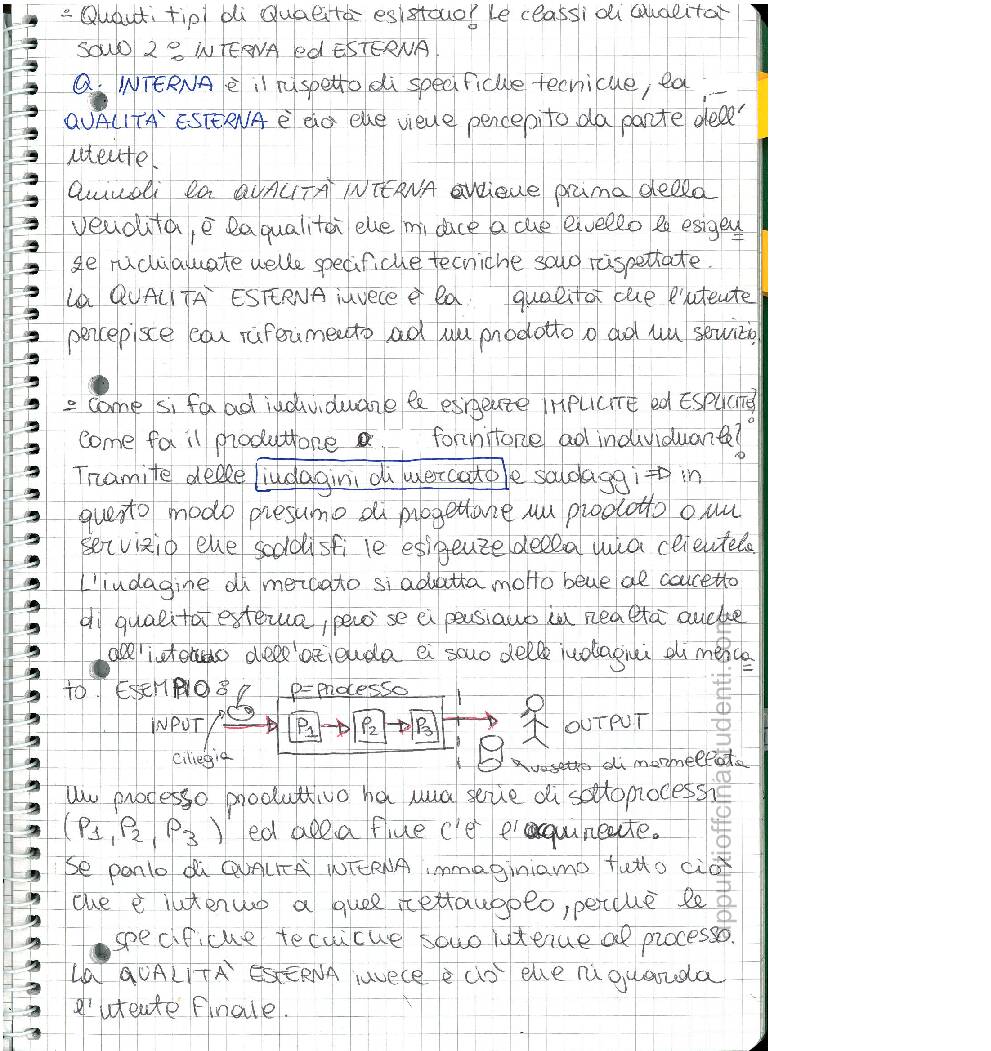 = Quanti tipi di Qualità esistono? Le classi di Qualità
sono 2: INTERNA ed ESTERNA.
Q. INTERNA è il rispetto di specifiche tecniche, la
QUALITÀ ESTERNA è ciò che viene percepito da parte dell'
utente.
Quindi la QUALITÀ INTERNA avviene prima della
vendita, è la qualità che mi dice a che livello le esigen
ze richiamate nelle specifiche tecniche sono rispettate.
La QUALITÀ ESTERNA invece è la qualità che l'utente
percepisce con riferimento ad un prodotto o ad un servizio.
= Come si fa ad individuare le esigenze IMPLICITE ed ESPLICITE?
Come fa il produttore o fornitore ad individuarle?
Tramite delle indagini di mercato e sondaggi => in
questo modo presumo di progettare un prodotto o un
servizio che soddisfi le esigenze della mia clientela
L'indagine di mercato si adatta molto bene al concetto
di qualità esterna, però se ci pensiamo in realtà anche
all'interno dell'azienda ci sono delle indagini di merca
to. ESEMPIO:
p=processo
INPUT P1 P2 P3 OUTPUT
ciliegia
vasetto di marmellata
Un processo produttivo ha una serie di sottoprocessi
(P1, P2, P3) ed alla fine c'è l'aquirente.
Se parlo di QUALITÀ INTERNA immaginiamo tutto ciò
che è interno a quel rettangolo, perchè le
specifiche tecniche sono interne al processo.
La QUALITÀ ESTERNA invece è ciò che riguarda
l'utente finale.
appuntiofficinastudenti.com